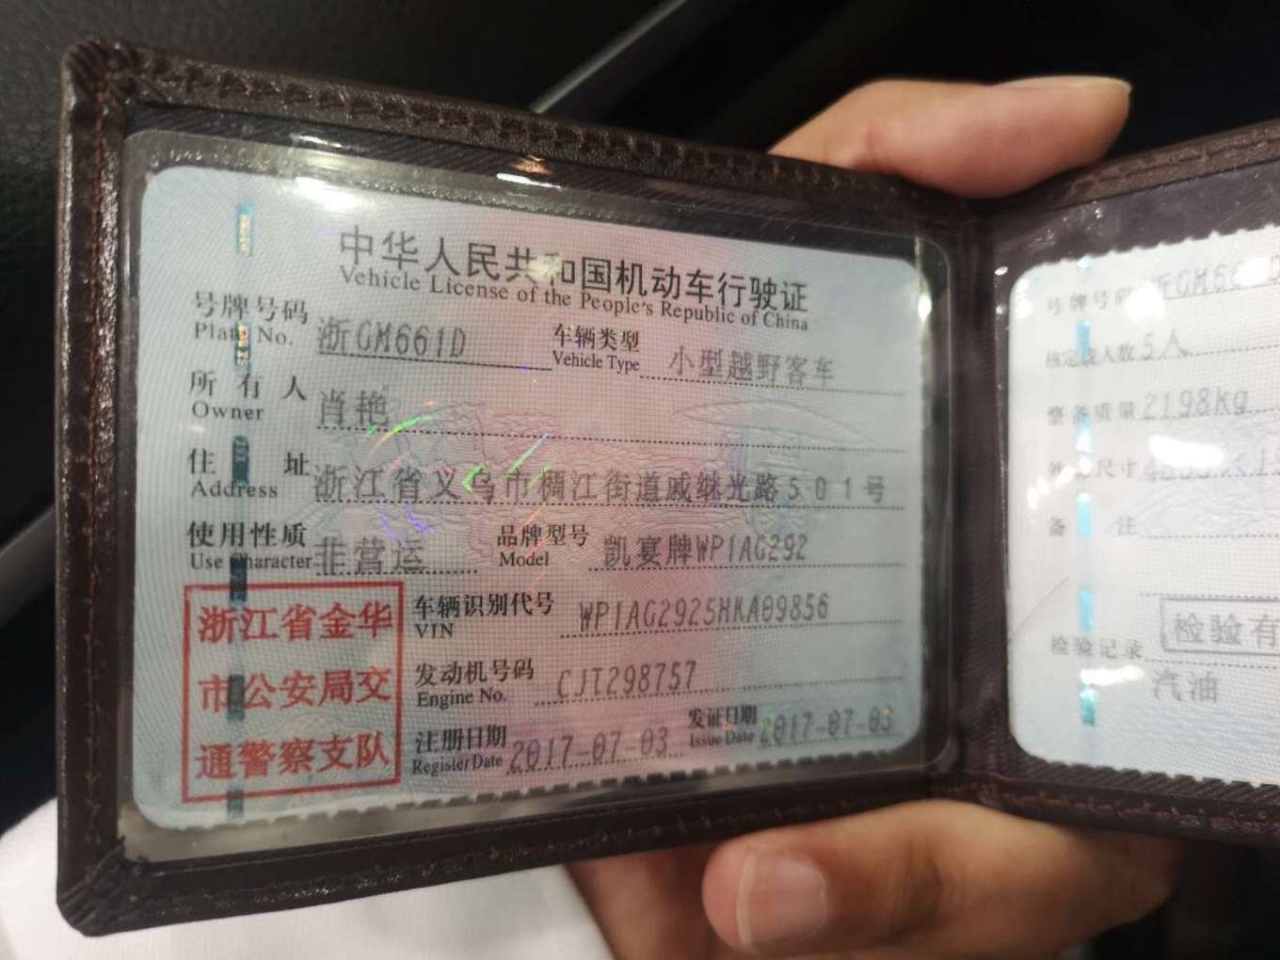 中华人民共和国机动车行驶证
Vehicle License of the People's Republic of China
号牌号码 浙GM661D 车辆类型 小型越野客车
Plate No. Vehicle Type
所有人 肖艳
Owner
住址 浙江省义乌市稠江街道戚继光路501号
Address
使用性质 非营运 品牌型号 凯宴牌WP1AG292
Use Character Model
浙江省金华
市公安局交
通警察支队
车辆识别代号 WP1AG2925HKA09856
VIN
发动机号码 CJT298757
Engine No.
注册日期 2017-07-03 发证日期 2017-07-03
Register Date Issue Date
号牌号码 浙GM66
核定载人数 5人
整备质量 2198kg
尺寸
备注
检验记录 检验有
汽油